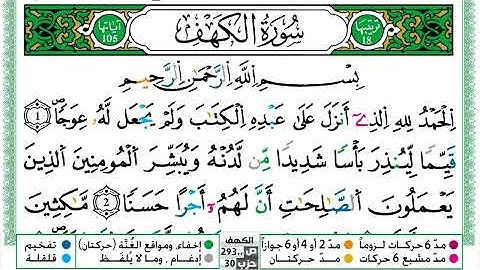 ترتيبها 18 سُورَةُ الكَهْفِ آياتها 105
بِسْمِ اللَّهِ الرَّحْمَٰنِ الرَّحِيمِ
اِ۬لْحَمْدُ لِلهِ اِ۬لذِےٓ أَنزَلَ عَلَىٰ عَبْدِهِ اِ۬لْكِتَٰبَ وَلَمْ يَجْعَل لَّهُۥ عِوَجاٗ 1
قَيِّماٗ لِّيُنذِرَ بَأْساٗ شَدِيداٗ مِّن لَّدُنْهُ وَيُبَشِّرَ اَ۬لْمُومِنِينَ اَ۬لذِينَ
يَعْمَلُونَ اَ۬لصَّٰلِحَٰتِ أَنَّ لَهُمُۥٓ أَجْراً حَسَناٗ 2 مَّٰكِثِينَ
مدّ 6 حركات لزوماً مدّ 2 أو 4 أو 6 جوازاً إخفاء، ومواقع الغُنَّة (حركتان) تفخيم
مدّ مشبع 6 حركات مدّ حركتـان إدغـام , ومـا لا يُلفَـظ قلقلة
الكهف
ص 293
حزب 30